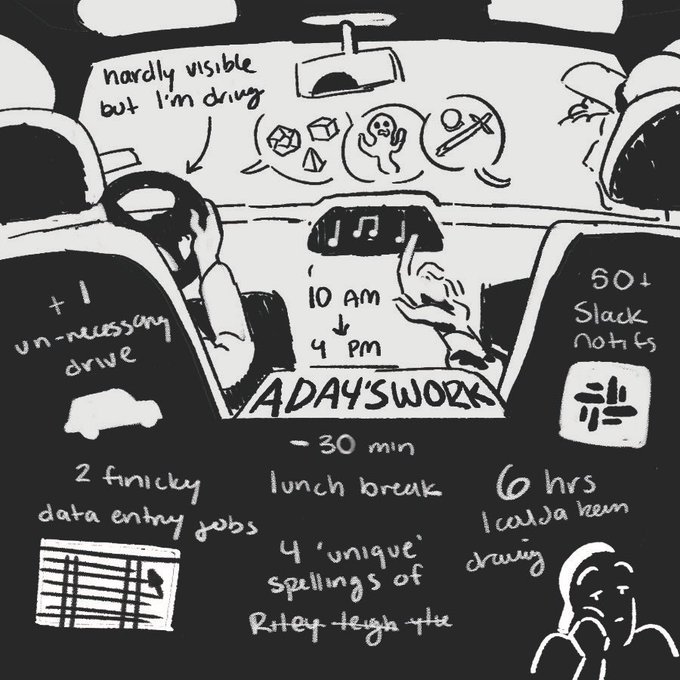 hardly visible
but I'm drivng
10 AM
4 PM
+ 1
un-necessary
drive
50+
Slack
notifs
A DAY'S WORK
- 30 min
lunch break
2 finicky
data entry jobs
6 hrs
I coulda been
drawing
4 'unique'
spellings of
Riley leigh